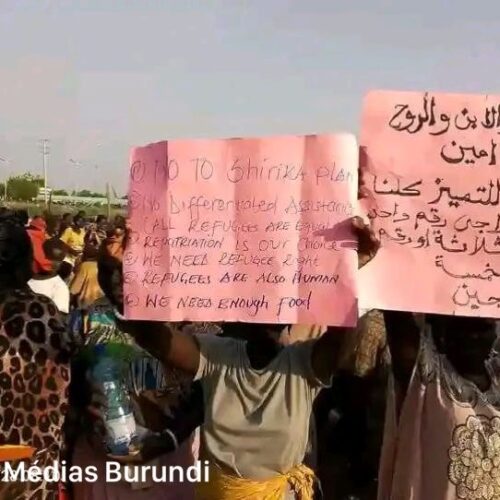 ① NO TO Shirika plan
② No Differentiated Assistance
(ALL REFUGEES ARE EQUAL
③ REPATRIATION IS OUR Choice
④ WE NEED REFUGEE Right
⑤ REFUGEES ARE ALSO HUMAN
⑥ WE NEED ENOUGH food
الابن والروح
امين
للتميز كلنا
رقم واحد
ثلاثة او رقم
خمسة
Médias Burundi